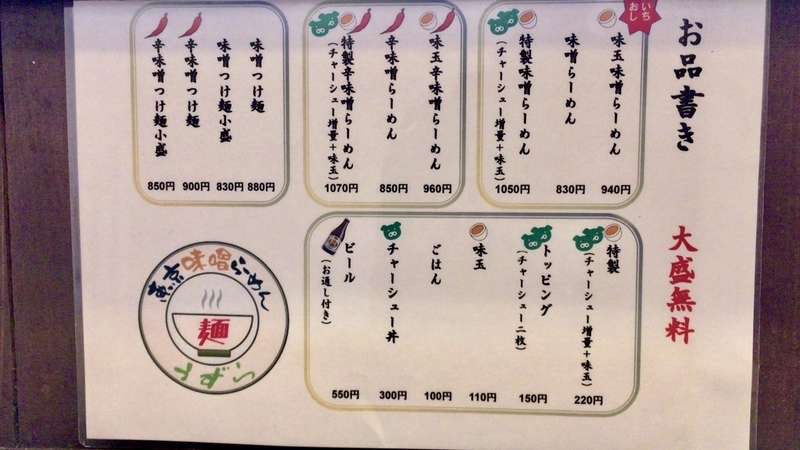 お品書き
大盛無料
いち
おし
味玉味噌らーめん
940円
味噌らーめん
830円
特製味噌らーめん
(チャーシュー増量+味玉)
1050円
味玉辛味噌らーめん
960円
辛味噌らーめん
850円
特製辛味噌らーめん
(チャーシュー増量+味玉)
1070円
味噌つけ麺
880円
味噌つけ麺小盛
830円
辛味噌つけ麺
900円
辛味噌つけ麺小盛
850円
特製
(チャーシュー増量+味玉)
220円
トッピング
(チャーシュー二枚)
150円
味玉
110円
ごはん
100円
チャーシュー丼
300円
ビール
(お通し付き)
550円
東京味噌らーめん
麺
うずら